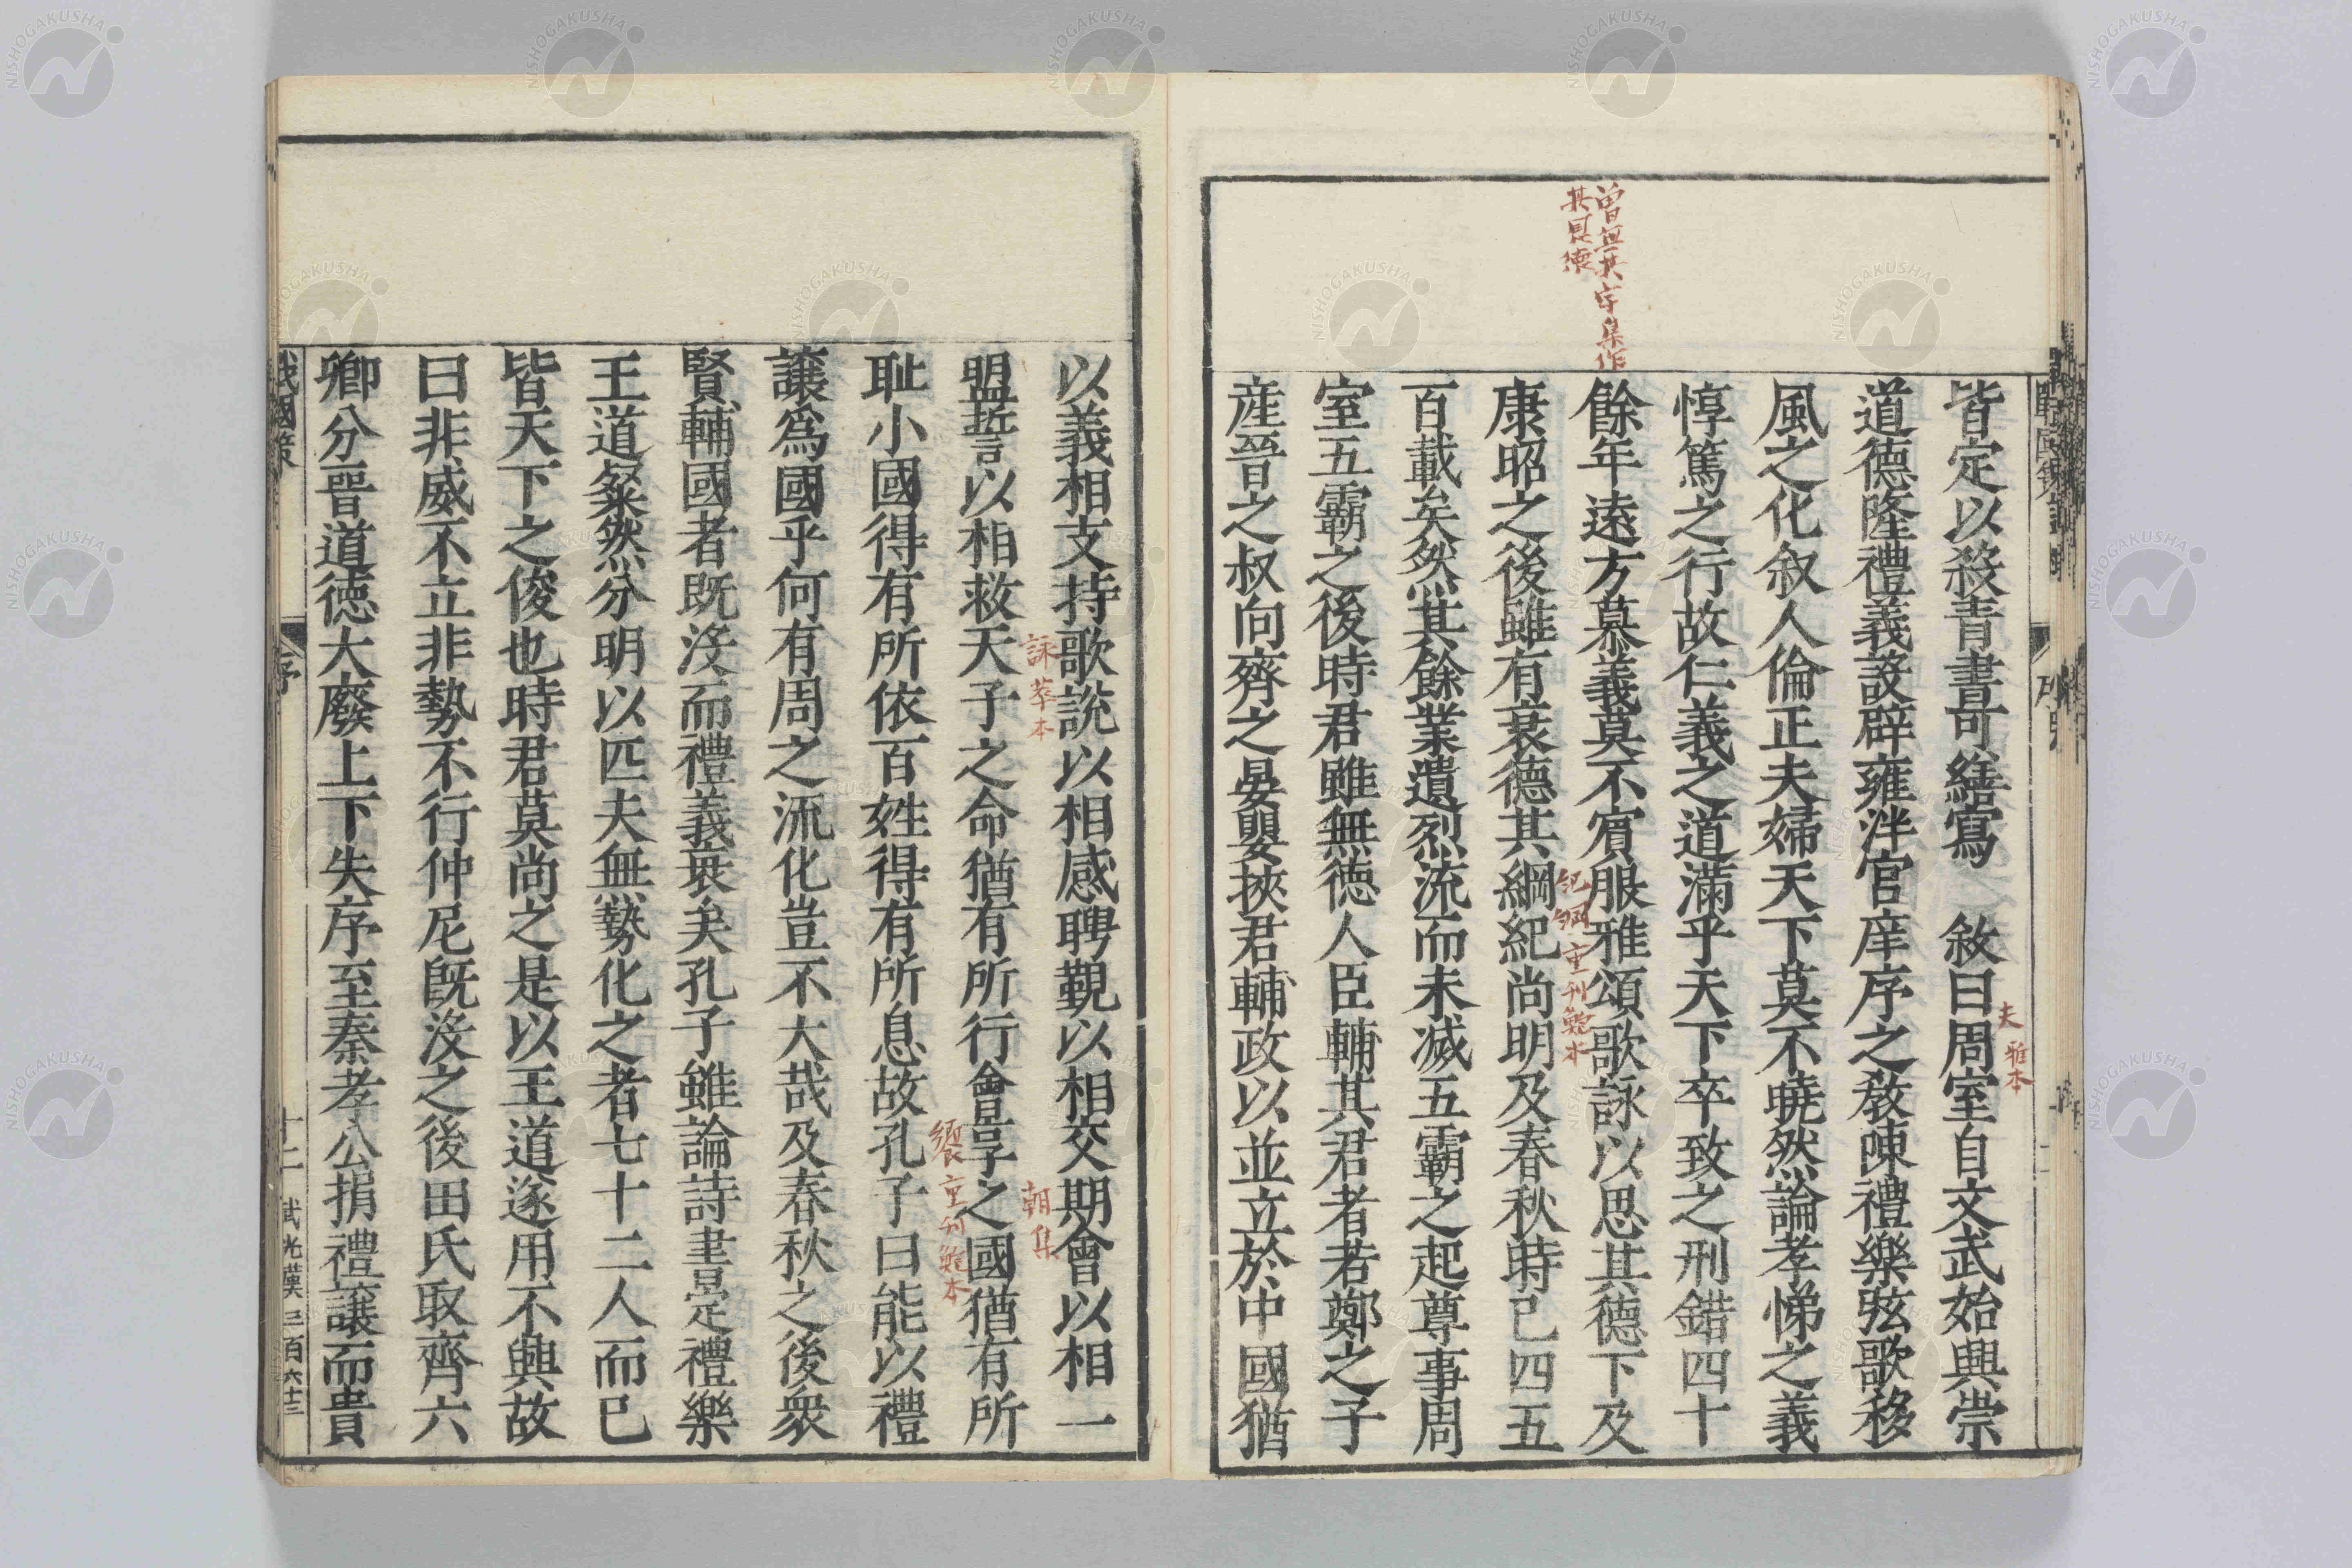 皆定以殺青書可繕寫　敘曰周室自文武始興崇
道德隆禮義設辟雍泮宮庠序之敎陳禮樂弦歌移
風之化叙人倫正夫婦天下莫不曉然論孝悌之義
惇篤之行故仁義之道滿乎天下卒致之刑錯四十
餘年遠方慕義莫不賓服雅頌歌詠以思其德下及
康昭之後雖有衰德其綱紀尚明及春秋時已四五
百載矣然其餘業遺烈流而未滅五霸之起尊事周
室五霸之後時君雖無德人臣輔其君者若鄭之子
産晉之叔向齊之晏嬰挾君輔政以並立於中國猶
曽無其字集作
其恩德
夫 雅本
紀綱重刊鮑本
以義相支持歌說以相感聘覲以相交期會以相一
盟誓以相救天子之命猶有所行會享之國猶有所
耻小國得有所依百姓得有所息故孔子曰能以禮
讓爲國乎何有周之流化豈不大哉及春秋之後衆
賢輔國者既没而禮義衰矣孔子雖論詩書定禮樂
王道粲然分明以匹夫無勢化之者七十二人而已
皆天下之俊也時君莫尚之是以王道遂用不興故
曰非威不立非勢不行仲尼旣没之後田氏取齊六
卿分晉道德大廢上下失序至秦孝公捐禮讓而貴
詠 本
朝集
饗重刊鮑本
戰國策
序
十二
NISHOGAKUSHA